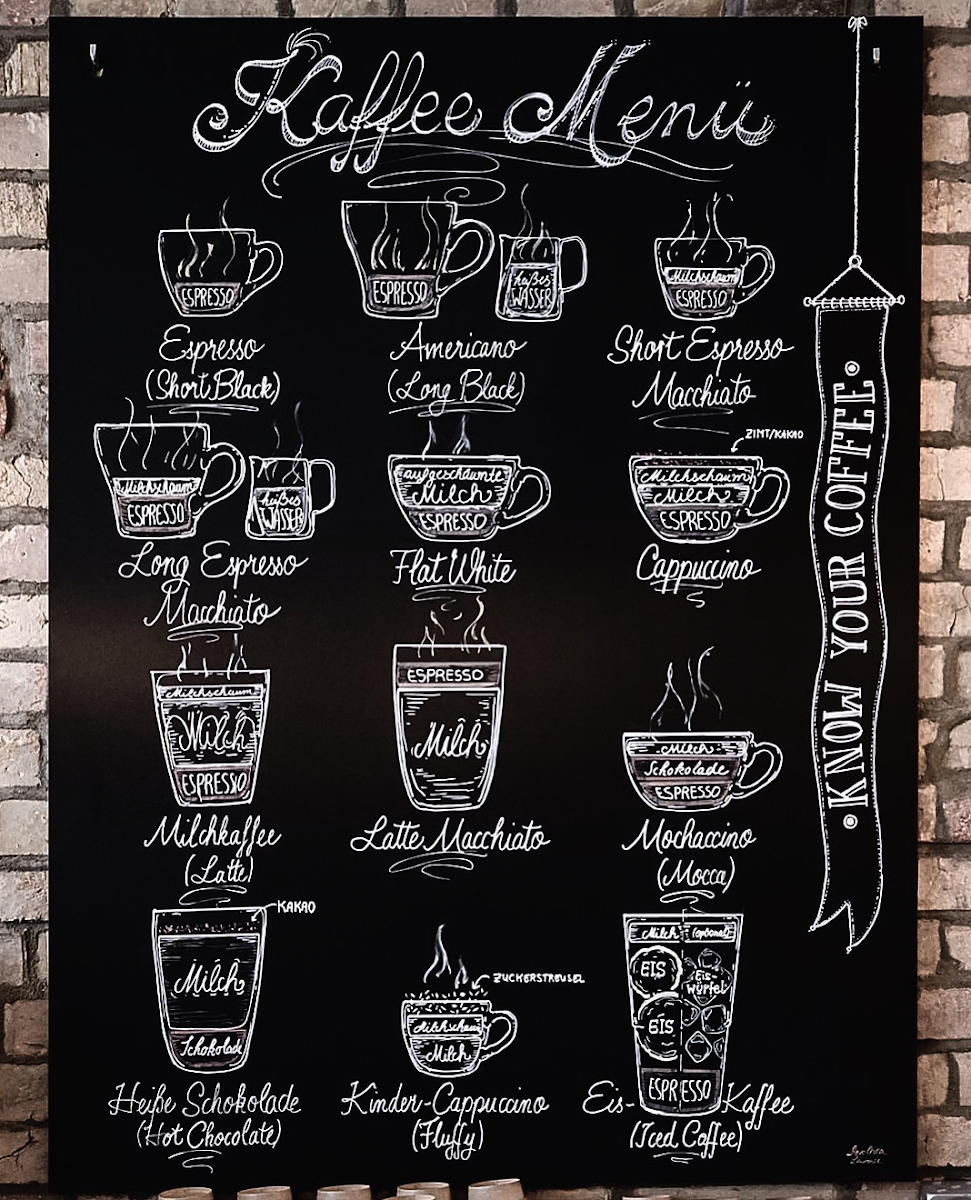 Kaffee Menü
ESPRESSO
Espresso
(Short Black)
ESPRESSO
heißes
WASSER
Americano
(Long Black)
Milchschaum
ESPRESSO
Short Espresso
Macchiato
Milchschaum
ESPRESSO
heißes
WASSER
Long Espresso
Macchiato
aufgeschäumte
Milch
ESPRESSO
Flat White
ZIMT/KAKAO
Milchschaum
Milch
ESPRESSO
Cappuccino
Milchschaum
Milch
ESPRESSO
Milchkaffee
(Latte)
ESPRESSO
Milch
Latte Macchiato
Milch
Schokolade
ESPRESSO
Mochaccino
(Mocca)
KAKAO
Milch
Schokolade
Heiße Schokolade
(Hot Chocolate)
ZUCKERSTREUSEL
Milchschaum
Milch
Kinder-Cappuccino
(Fluffy)
Milch (optional)
EIS
EIS
Eis-
würfel
ESPRESSO
Eis-Kaffee
(Iced Coffee)
• KNOW YOUR COFFEE •